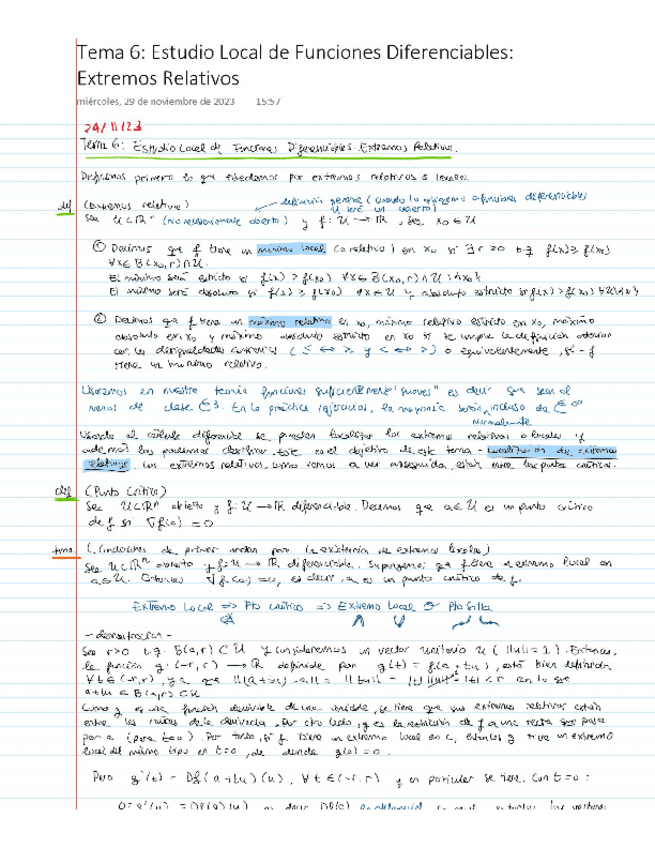 Tema 6: Estudio Local de Funciones Diferenciables:
Extremos Relativos
miércoles, 29 de noviembre de 2023 15:57
29/11/23
Tema 6: Estudio Local de Funciones Diferenciables. Extremos Relativos.
Definamos primero lo que entendemos por extremos relativos o locales.
def (Extremos relativos) definición general (cuando lo apliquemos a funciones diferenciables
U será un abierto)
Sea U⊂ℝⁿ (no necesariamente abierto) y f: U → ℝ, sea x₀ ∈ U
① Decimos que f tiene un mínimo local (o relativo) en x₀ si ∃ r > 0 t.q. f(x) ≥ f(x₀)
∀x ∈ B(x₀,r) ∩ U.
El mínimo será estricto si f(x) > f(x₀) ∀x ∈ B(x₀,r) ∩ U \ {x₀}
El mínimo será absoluto si f(x) ≥ f(x₀) ∀x ∈ U y absoluto estricto si f(x) > f(x₀) ∀x∈U\{x₀}
② Decimos que f tiene un máximo relativo en x₀, máximo relativo estricto en x₀, máximo
absoluto en x₀ y máximo absoluto estricto en x₀ si se cumple la definición anterior
con las desigualdades contrarias (≤ ↔ ≥ y < ↔ >) o equivalentemente, si -f
tiene un mínimo relativo.
Usaremos en nuestra teoría funciones suficientemente "suaves" es decir que sean al
menos de clase C³. En la práctica (ejercicios), la mayoría serán incluso de C^∞
normalmente
Usando el cálculo diferencial se pueden localizar los extremos relativos o locales y
además los podremos clasificar. Este es el objetivo de este tema - Localización de extremos
relativos. Los extremos relativos, como vamos a ver enseguida, están entre los puntos críticos.
def (Punto Crítico)
Sea U⊂ℝⁿ abierto y f: U → ℝ diferenciable. Decimos que a∈U es un punto crítico
de f si ∇f(a) = 0
tma (Condiciones de primer orden para la existencia de extremos locales)
Sea U⊂ℝⁿ abierto y f: U → ℝ diferenciable. Supongamos que f tiene un extremo local en
a∈U. Entonces ∇f(a) = 0, es decir, a es un punto crítico de f.
Extremo Local => Pto Crítico => Extremo Local o Pto Silla
- demostración -
Sea r>0 t.q. B(a,r) ⊂ U y consideremos un vector unitario u (||u|| = 1). Entonces,
la función g: (-r,r) → ℝ definida por g(t) = f(a+tu), está bien definida
∀t∈(-r,r), ya que ||(a+tu)-a|| = ||tu|| = |t| ||u|| = |t| < r con lo que
a+tu ∈ B(a,r) ⊂ U
Como g es una función derivable de una variable, se tiene que sus extremos relativos están
entre los ceros de la derivada. Por otro lado, g es la restricción de f a una recta que pasa
por a (para t=0). Por tanto, si f tiene un extremo local en a, entonces g tiene un extremo
local del mismo tipo en t=0, de donde g'(0) = 0.
Pero g'(t) = Df(a+tu)(u), ∀t∈(-r,r) y en particular se tiene, con t=0: